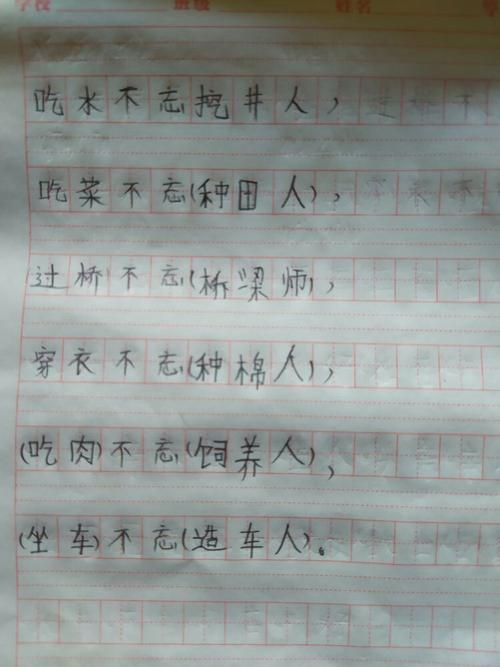 学校 班级 姓名
吃水不忘挖井人，
吃菜不忘(种田人)，
过桥不忘(桥梁师)，
穿衣不忘(种棉人)，
(吃肉)不忘(饲养人)，
(坐车)不忘(造车人)。